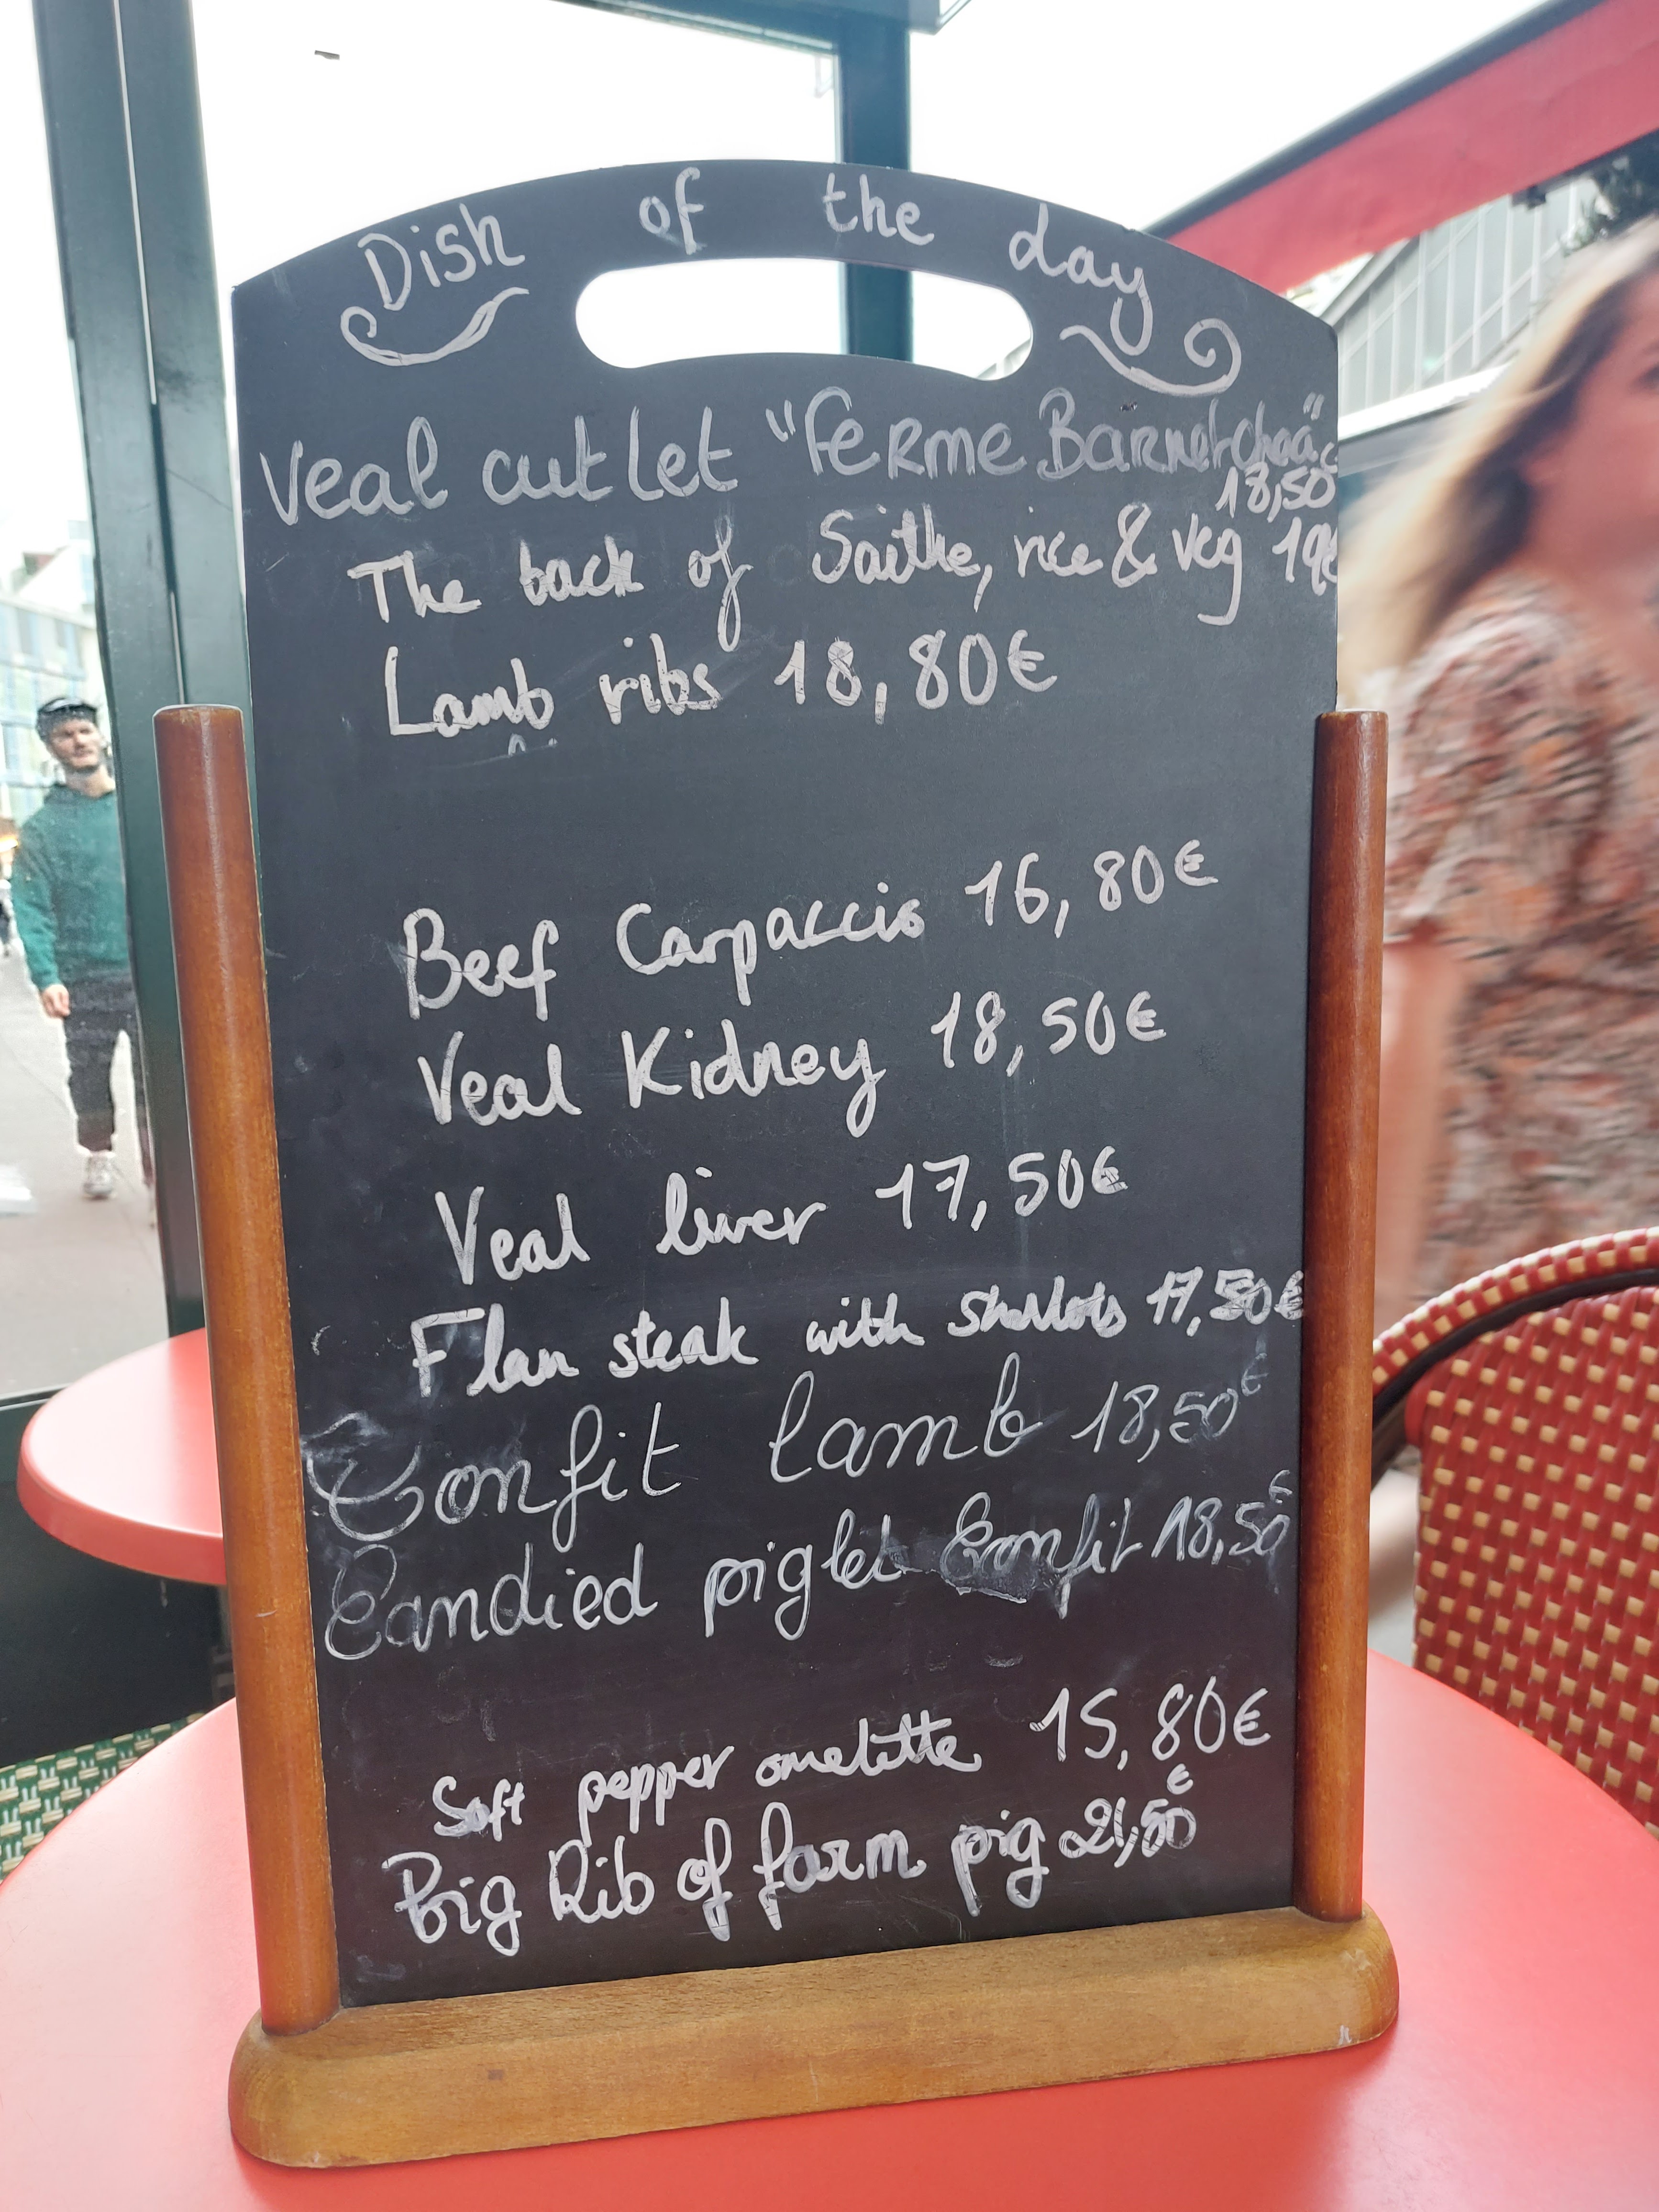 Dish of the day
Veal cutlet "Ferme
18,50
The back of Saithe, rice & veg 19€
Lamb ribs 18,80€
Beef Carpaccio 16,80€
Veal Kidney 18,50€
Veal liver 17,50€
Flan steak with shallots 17,50€
Confit lamb 18,50€
Candied piglet Confit 18,50€
Soft pepper omelette 15,80€
Big Rib of farm pig 21,50€